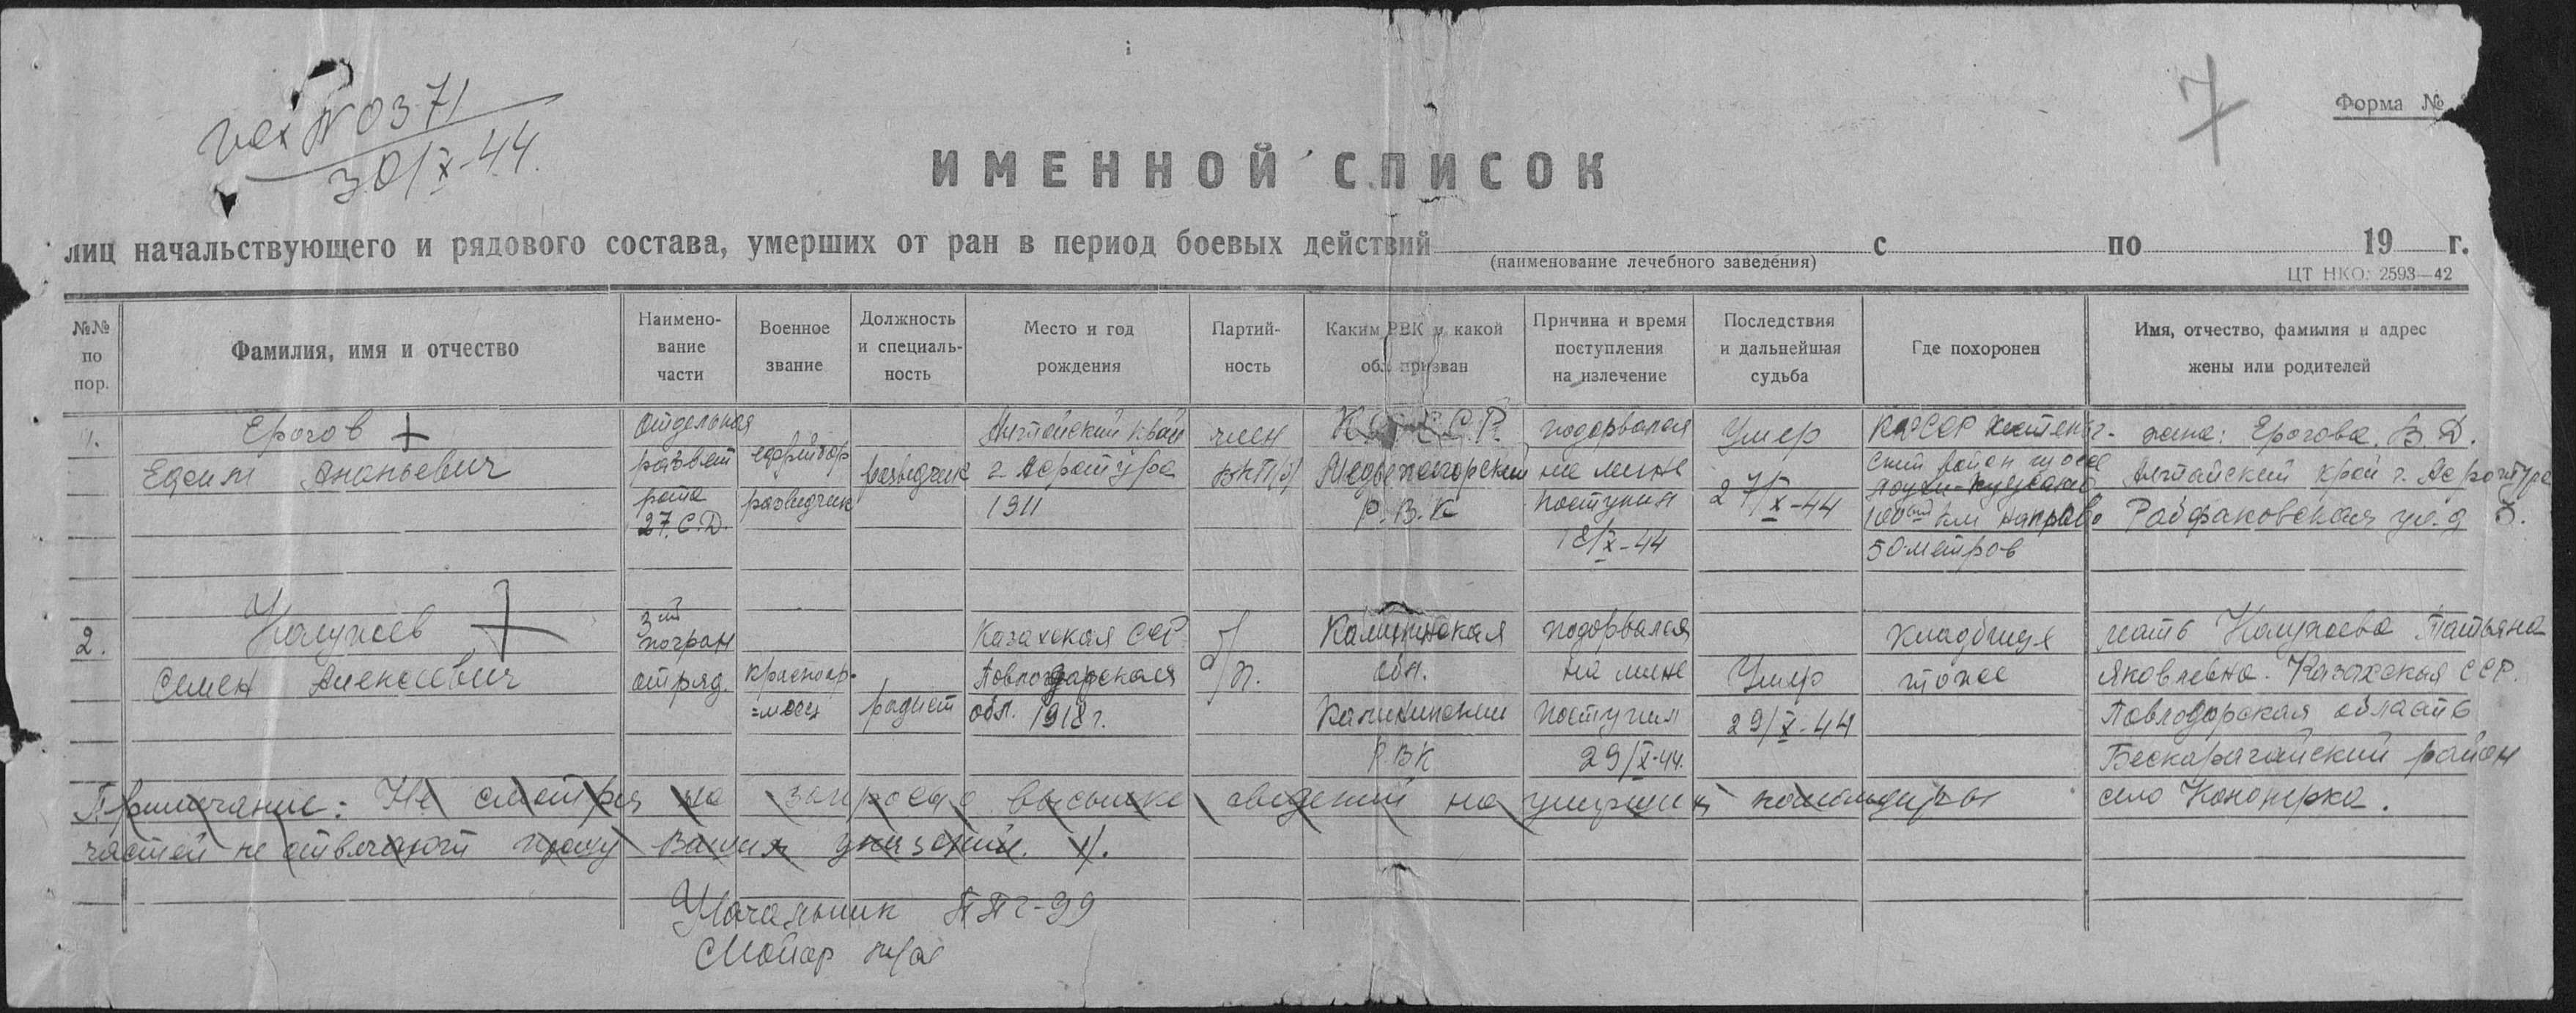 исх № 0371
30/X-44.
7
Форма №
ИМЕННОЙ СПИСОК
лиц начальствующего и рядового состава, умерших от ран в период боевых действий с по 19 г.
(наименование лечебного заведения)
ЦТ НКО. 2593—42
№№ по пор.
Фамилия, имя и отчество
Наимено-
вание
части
Военное
звание
Должность
и специаль-
ность
Место и год
рождения
Партий-
ность
Каким РВК и какой
обл. призван
Причина и время
поступления
на излечение
Последствия
и дальнейшая
судьба
Где похоронен
Имя, отчество, фамилия и адрес
жены или родителей
1.
Ерогов +
Ефим Ананьевич
Отдельная
развед
рота
27. С.Д.
ефрейтор
разведчик
разведчик
Алтайский край
г.
1911
член
ВКП(б)
К С.С.Р.
Медвежегорский
Р.В.К
подорвался
на мине
поступил
18/X-44
Умер
27/X-44
КФССР
ский район шоссе
100ый км направо
50 метров
жена: Ерогова. В. Д.
Алтайский край г.
Рабфаковская ул. д 8.
2.
Налужев +
Семен Алексеевич
3ий
погран
отряд.
красноар-
=меец
радист
Казахская ССР
Павлодарская
обл. 1918 г.
б/п.
Калининская
обл.
Калининский
Р.ВК
подорвался
на мине
поступил
29/X-44.
Умер
29/X-44
кладбище
тоже
мать Налужева Татьяна
Яковлевна. Казахская ССР.
Павлодарская область
Бескарагайский район
село Кононерка.
Примечание: Не смотря на запросы о высылке сведений на умерших командиры
частей не отвечают прошу Ваших указаний.
Начальник ППГ-99
Майор м/с